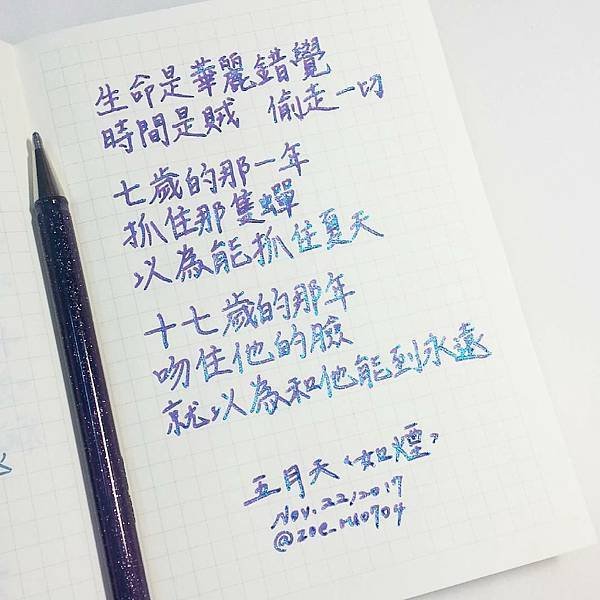 生命是華麗錯覺
時間是賊 偷走一切
七歲的那一年
抓住那隻蟬
以為能抓住夏天
十七歲的那年
吻住他的臉
就以為和他能到永遠
五月天〈如煙〉
Nov. 22, 2017
@zoe_ruo704